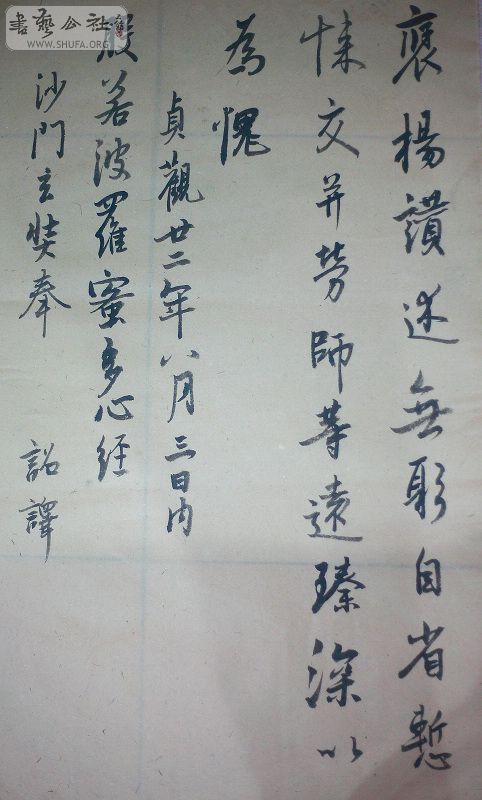 褒揚讚述無躬自省慙
悚交并勞師等遠臻深以
為愧
貞觀廿二年八月三日內
般若波羅蜜多心經
沙門玄奘奉 詔譯
書藝公社
WWW.SHUFA.ORG